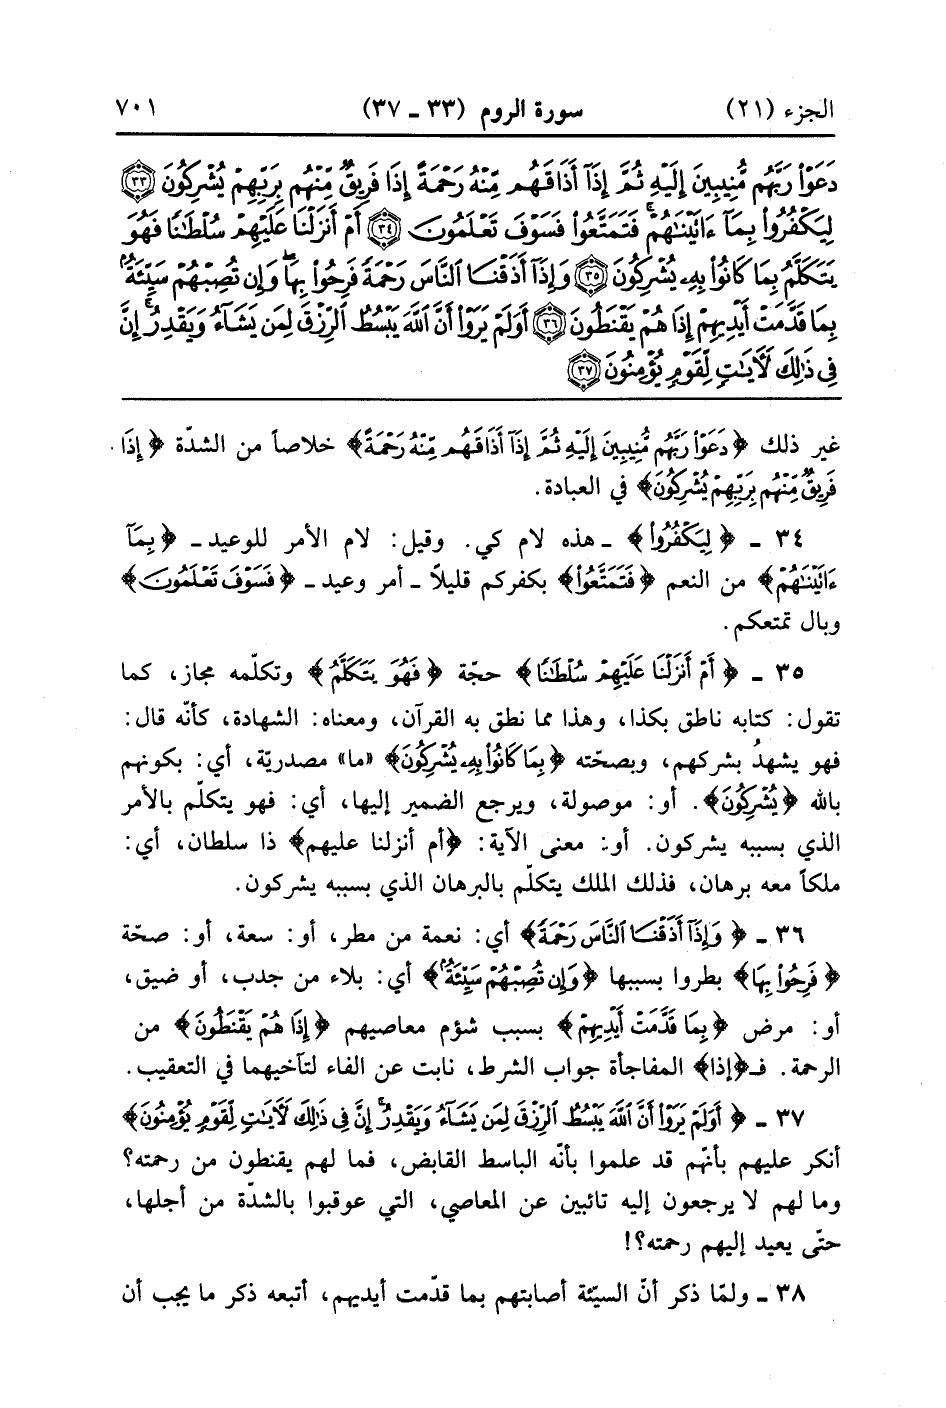 الجزء (٢١) سورة الروم (٣٣ ـ ٣٧) ٧٠١
دَعَوْا۟ رَبَّهُم مُّنِيبِينَ إِلَيْهِ ثُمَّ إِذَآ أَذَاقَهُم مِّنْهُ رَحْمَةً إِذَا فَرِيقٌ مِّنْهُم بِرَبِّهِمْ يُشْرِكُونَ ﴿٣٣﴾
لِيَكْفُرُوا۟ بِمَآ ءَاتَيْنَٰهُمْ ۚ فَتَمَتَّعُوا۟ فَسَوْفَ تَعْلَمُونَ ﴿٣٤﴾ أَمْ أَنزَلْنَا عَلَيْهِمْ سُلْطَٰنًا فَهُوَ
يَتَكَلَّمُ بِمَا كَانُوا۟ بِهِۦ يُشْرِكُونَ ﴿٣٥﴾ وَإِذَآ أَذَقْنَا ٱلنَّاسَ رَحْمَةً فَرِحُوا۟ بِهَا ۖ وَإِن تُصِبْهُمْ سَيِّئَةٌۢ
بِمَا قَدَّمَتْ أَيْدِيهِمْ إِذَا هُمْ يَقْنَطُونَ ﴿٣٦﴾ أَوَلَمْ يَرَوْا۟ أَنَّ ٱللَّهَ يَبْسُطُ ٱلرِّزْقَ لِمَن يَشَآءُ وَيَقْدِرُ ۚ إِنَّ
فِى ذَٰلِكَ لَءَايَٰتٍ لِّقَوْمٍ يُؤْمِنُونَ ﴿٣٧﴾
غير ذلك ﴿دَعَوْا۟ رَبَّهُم مُّنِيبِينَ إِلَيْهِ ثُمَّ إِذَآ أَذَاقَهُم مِّنْهُ رَحْمَةً﴾ خلاصاً من الشدّة ﴿إِذَا
فَرِيقٌ مِّنْهُم بِرَبِّهِمْ يُشْرِكُونَ﴾ في العبادة.
٣٤ ـ ﴿لِيَكْفُرُوا۟﴾ ـ هذه لام كي. وقيل: لام الأمر للوعيد ـ ﴿بِمَآ
ءَاتَيْنَٰهُمْ﴾ من النعم ﴿فَتَمَتَّعُوا۟﴾ بكفركم قليلاً ـ أمر وعيد ـ ﴿فَسَوْفَ تَعْلَمُونَ﴾
وبال تمتعكم.
٣٥ ـ ﴿أَمْ أَنزَلْنَا عَلَيْهِمْ سُلْطَٰنًا﴾ حجّة ﴿فَهُوَ يَتَكَلَّمُ﴾ وتكلّمه مجاز، كما
تقول: كتابه ناطق بكذا، وهذا مما نطق به القرآن، ومعناه: الشهادة، كأنّه قال:
فهو يشهدُ بشركهم، وبصحّته ﴿بِمَا كَانُوا۟ بِهِۦ يُشْرِكُونَ﴾ «ما» مصدريّة، أي: بكونهم
بالله ﴿يُشْرِكُونَ﴾. أو: موصولة، ويرجع الضمير إليها، أي: فهو يتكلّم بالأمر
الذي بسببه يشركون. أو: معنى الآية: ﴿أم أنزلنا عليهم﴾ ذا سلطان، أي:
ملكاً معه برهان، فذلك الملك يتكلّم بالبرهان الذي بسببه يشركون.
٣٦ ـ ﴿وَإِذَآ أَذَقْنَا ٱلنَّاسَ رَحْمَةً﴾ أي: نعمة من مطر، أو: سعة، أو: صحّة
﴿فَرِحُوا۟ بِهَا﴾ بطروا بسببها ﴿وَإِن تُصِبْهُمْ سَيِّئَةٌۢ﴾ أي: بلاء من جدب، أو ضيق،
أو: مرض ﴿بِمَا قَدَّمَتْ أَيْدِيهِمْ﴾ بسبب شؤم معاصيهم ﴿إِذَا هُمْ يَقْنَطُونَ﴾ من
الرحمة. فـ﴿إذا﴾ المفاجأة جواب الشرط، نابت عن الفاء لتآخيهما في التعقيب.
٣٧ ـ ﴿أَوَلَمْ يَرَوْا۟ أَنَّ ٱللَّهَ يَبْسُطُ ٱلرِّزْقَ لِمَن يَشَآءُ وَيَقْدِرُ ۚ إِنَّ فِى ذَٰلِكَ لَءَايَٰتٍ لِّقَوْمٍ يُؤْمِنُونَ﴾
أنكر عليهم بأنّهم قد علموا بأنّه الباسط القابض، فما لهم يقنطون من رحمته؟
وما لهم لا يرجعون إليه تائبين عن المعاصي، التي عوقبوا بالشدّة من أجلها،
حتّى يعيد إليهم رحمته؟!
٣٨ ـ ولمّا ذكر أنّ السيّئة أصابتهم بما قدّمت أيديهم، أتبعه ذكر ما يجب أن